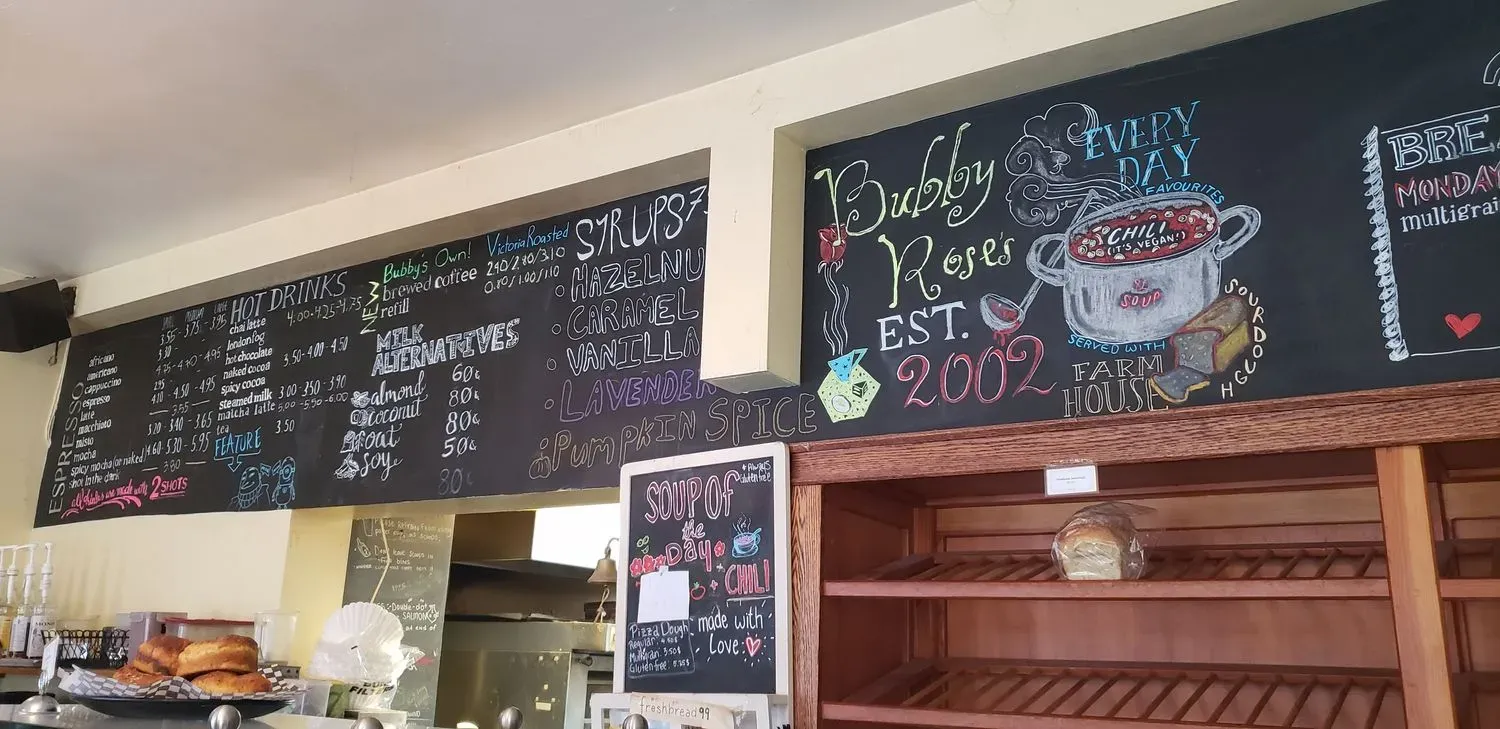 ESPRESSO
africano
americano
cappuccino
espresso
latte
macchiato
misto
mocha
spicy mocha (or naked)
shot in the dark
3.55 - 3.75 - 3.95
3.30
4.75 - 4.70 - 4.95
2.95
4.10 - 4.50 - 4.95
3.55
3.20 - 3.40 - 3.65
4.60 - 5.30 - 5.95
3.80
all drinks are made with 2 SHOTS
HOT DRINKS
chai latte
london fog
hot chocolate
naked cocoa
spicy cocoa
steamed milk
matcha latte
tea
4.00 - 4.25 - 4.75
3.50 - 4.00 - 4.50
3.00 3.50 - 3.90
5.00 - 5.50 - 6.00
3.50
FEATURE
NEW
Bubby's Own!
brewed coffee
refill
Victoria Roasted
2.40/2.80/3.10
0.80/1.00/1.10
MILK
ALTERNATIVES
almond 60¢
coconut 80¢
oat 80¢
soy 50¢
80¢
SYRUPS
HAZELNU
CARAMEL
VANILLA
LAVENDER
PUMPKIN SPICE
Bubby
Rose's
EST.
2002
EVERY
DAY
FAVOURITES
CHILI
(IT'S VEGAN!)
SOUP
SERVED WITH
FARM
HOUSE
SOURDOUGH
BRE
MONDAY
multigrai
SOUP OF
the
Day
CHILI
*Always
gluten free
made with
Love
Pizza Dough
Regular: 4.50$
Multigrain: 3.50$
Gluten-free: 5.25$
freshbread99
Double-dot
SALMON